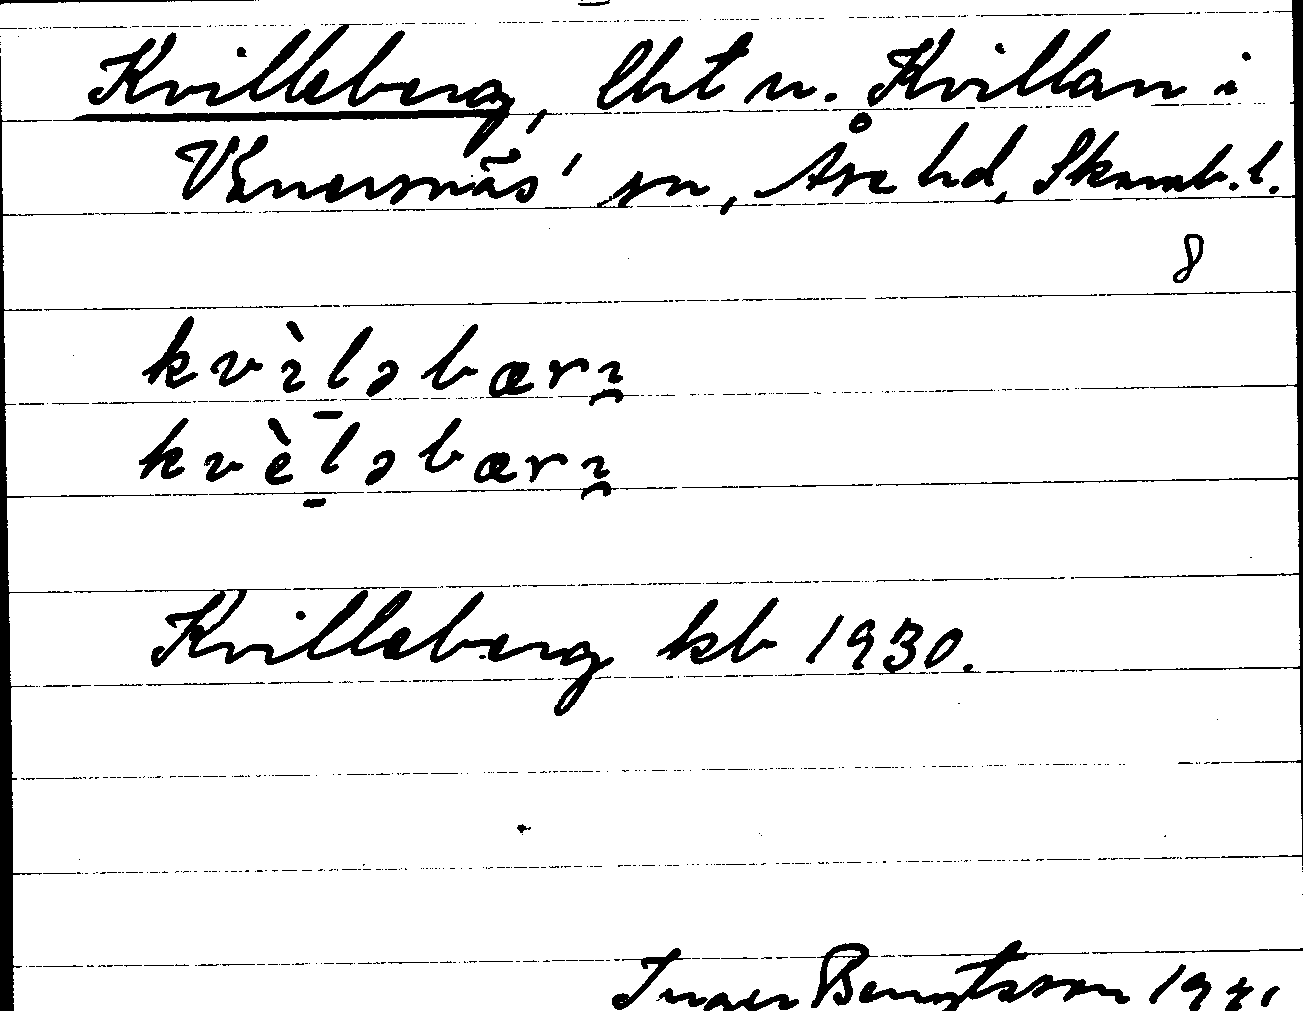 Kvilleberg, lht u. Kvillan i
Vänersnäs' sn, Åse hd, Skarab. l.
8
kvìləbærı
kvèləbærı
Kvilleberg kb 1930.
Inger Bengtsson